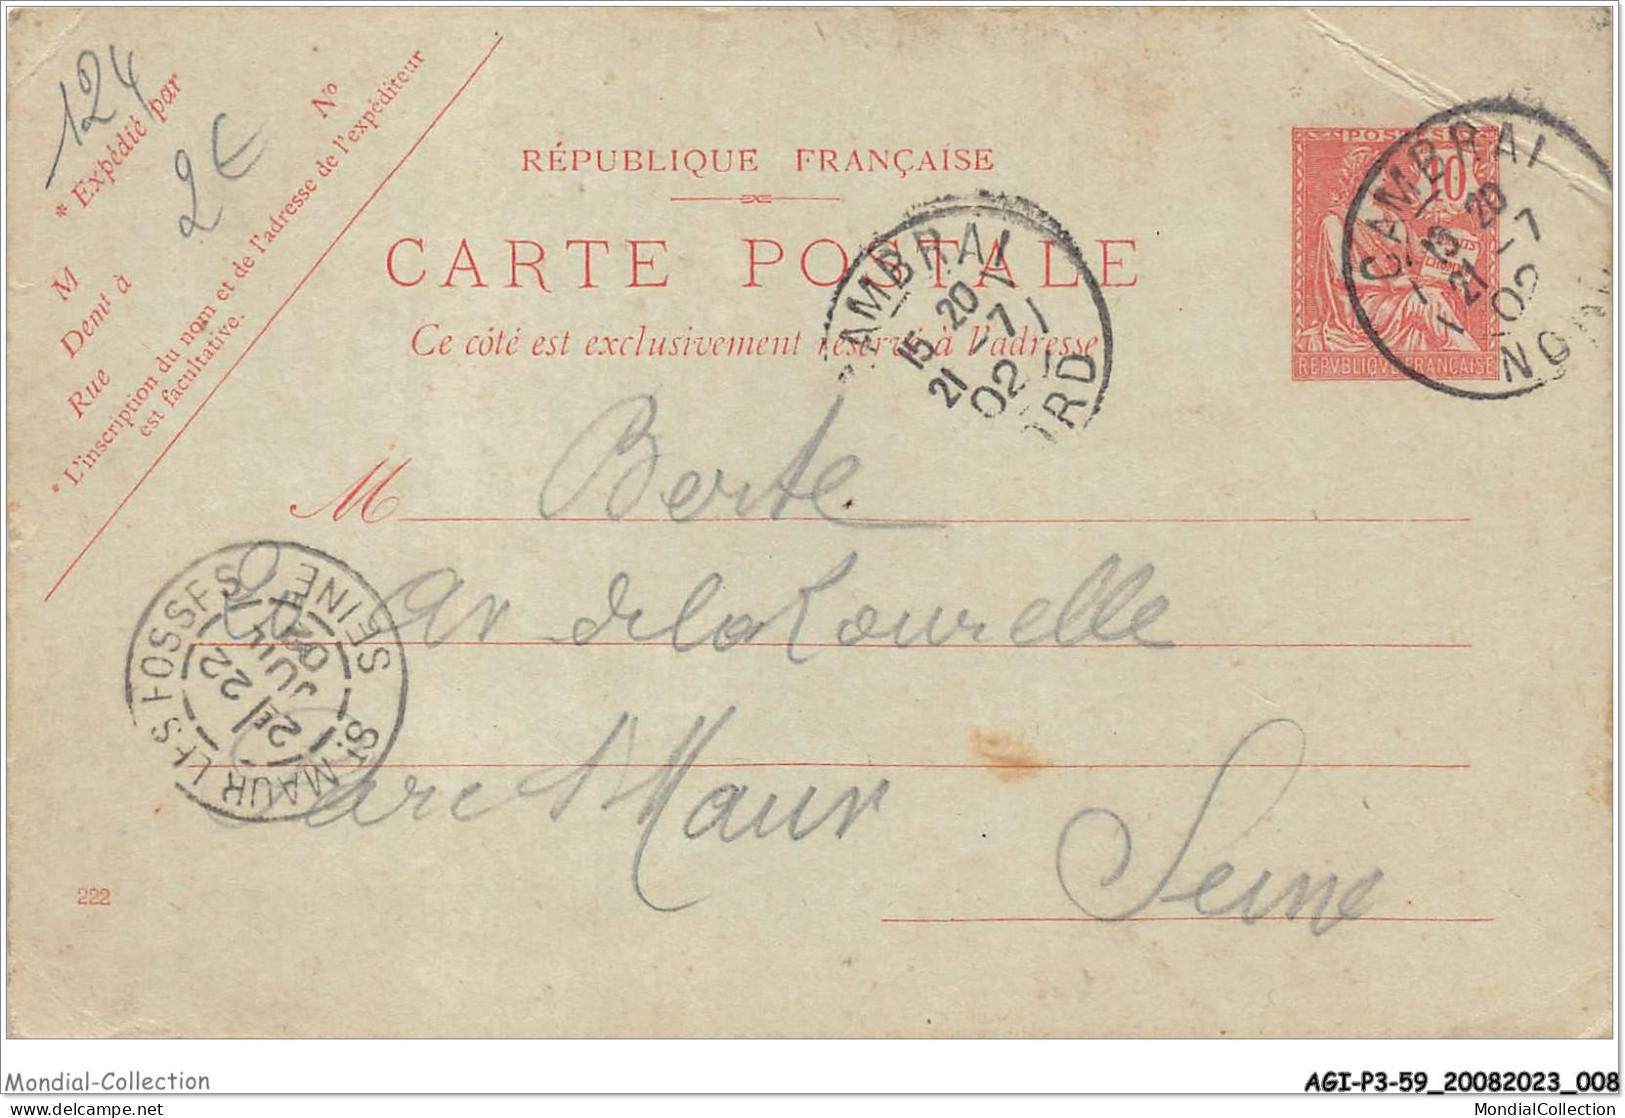 124
2€
* Expédié par
M
Demt à
Rue
No
* L'inscription du nom et de l'adresse de l'expéditeur
est facultative.
RÉPUBLIQUE FRANÇAISE
CARTE POSTALE
Ce côté est exclusivement réservé à l'adresse
POSTES
10
REPVBLIQVE FRANÇAISE
CAMBRAI
15 20
21 -7
02
NORD
AMBRAI
15 20
21 -7
02
ORD
M Berte
20 Av de la Tourelle
Parc St Maur
Seine
ST MAUR LES FOSSES
SEINE
2E
22
JUIL
02
222
Mondial-Collection
AGI-P3-59_20082023_008
delcampe.net
MondialCollection